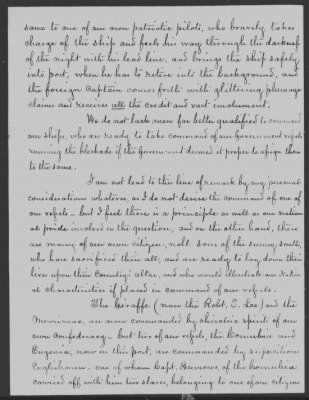 same to one of our own patriotic pilots, who bravely takes
charge of the ship and feels his way through the darkness
of the night with his lead line, and brings the ship safely
into port, when he has to retire into the background, and
the foreign Captain comes forth with glittering plumage
claims and receives all the credit and vast emolument.
We do not lack men far better qualified to command
our ships, who are ready to take command of our Government vessels
running the blockade if the Government deemed it proper to assign them
to the same.
I am not lead to this line of remark by any personal
consideration whatever, as I do not desire the command of one of
our vessels - but I feel there is a principle as well as our nation
al pride involved in the question, and on the other hand, there
are many of our own citizens, noble sons of the sunny south,
who have sacrificed their all, and are ready to lay down their
lives upon their Country's altar, and who would illustrate our Nation
al characteristics if placed in command of our vessels.
The Giraffe (now the Robt. E. Lee) and the
Merrimac, are now commanded by chivalric spirits of our
own Confederacy - but two of our vessels, the Cornubia and
Eugenia, now in this port, are commanded by
Englishmen - one of whom Capt. Burrows, of the Cornubia
carried off with him two slaves, belonging to one of our citizens